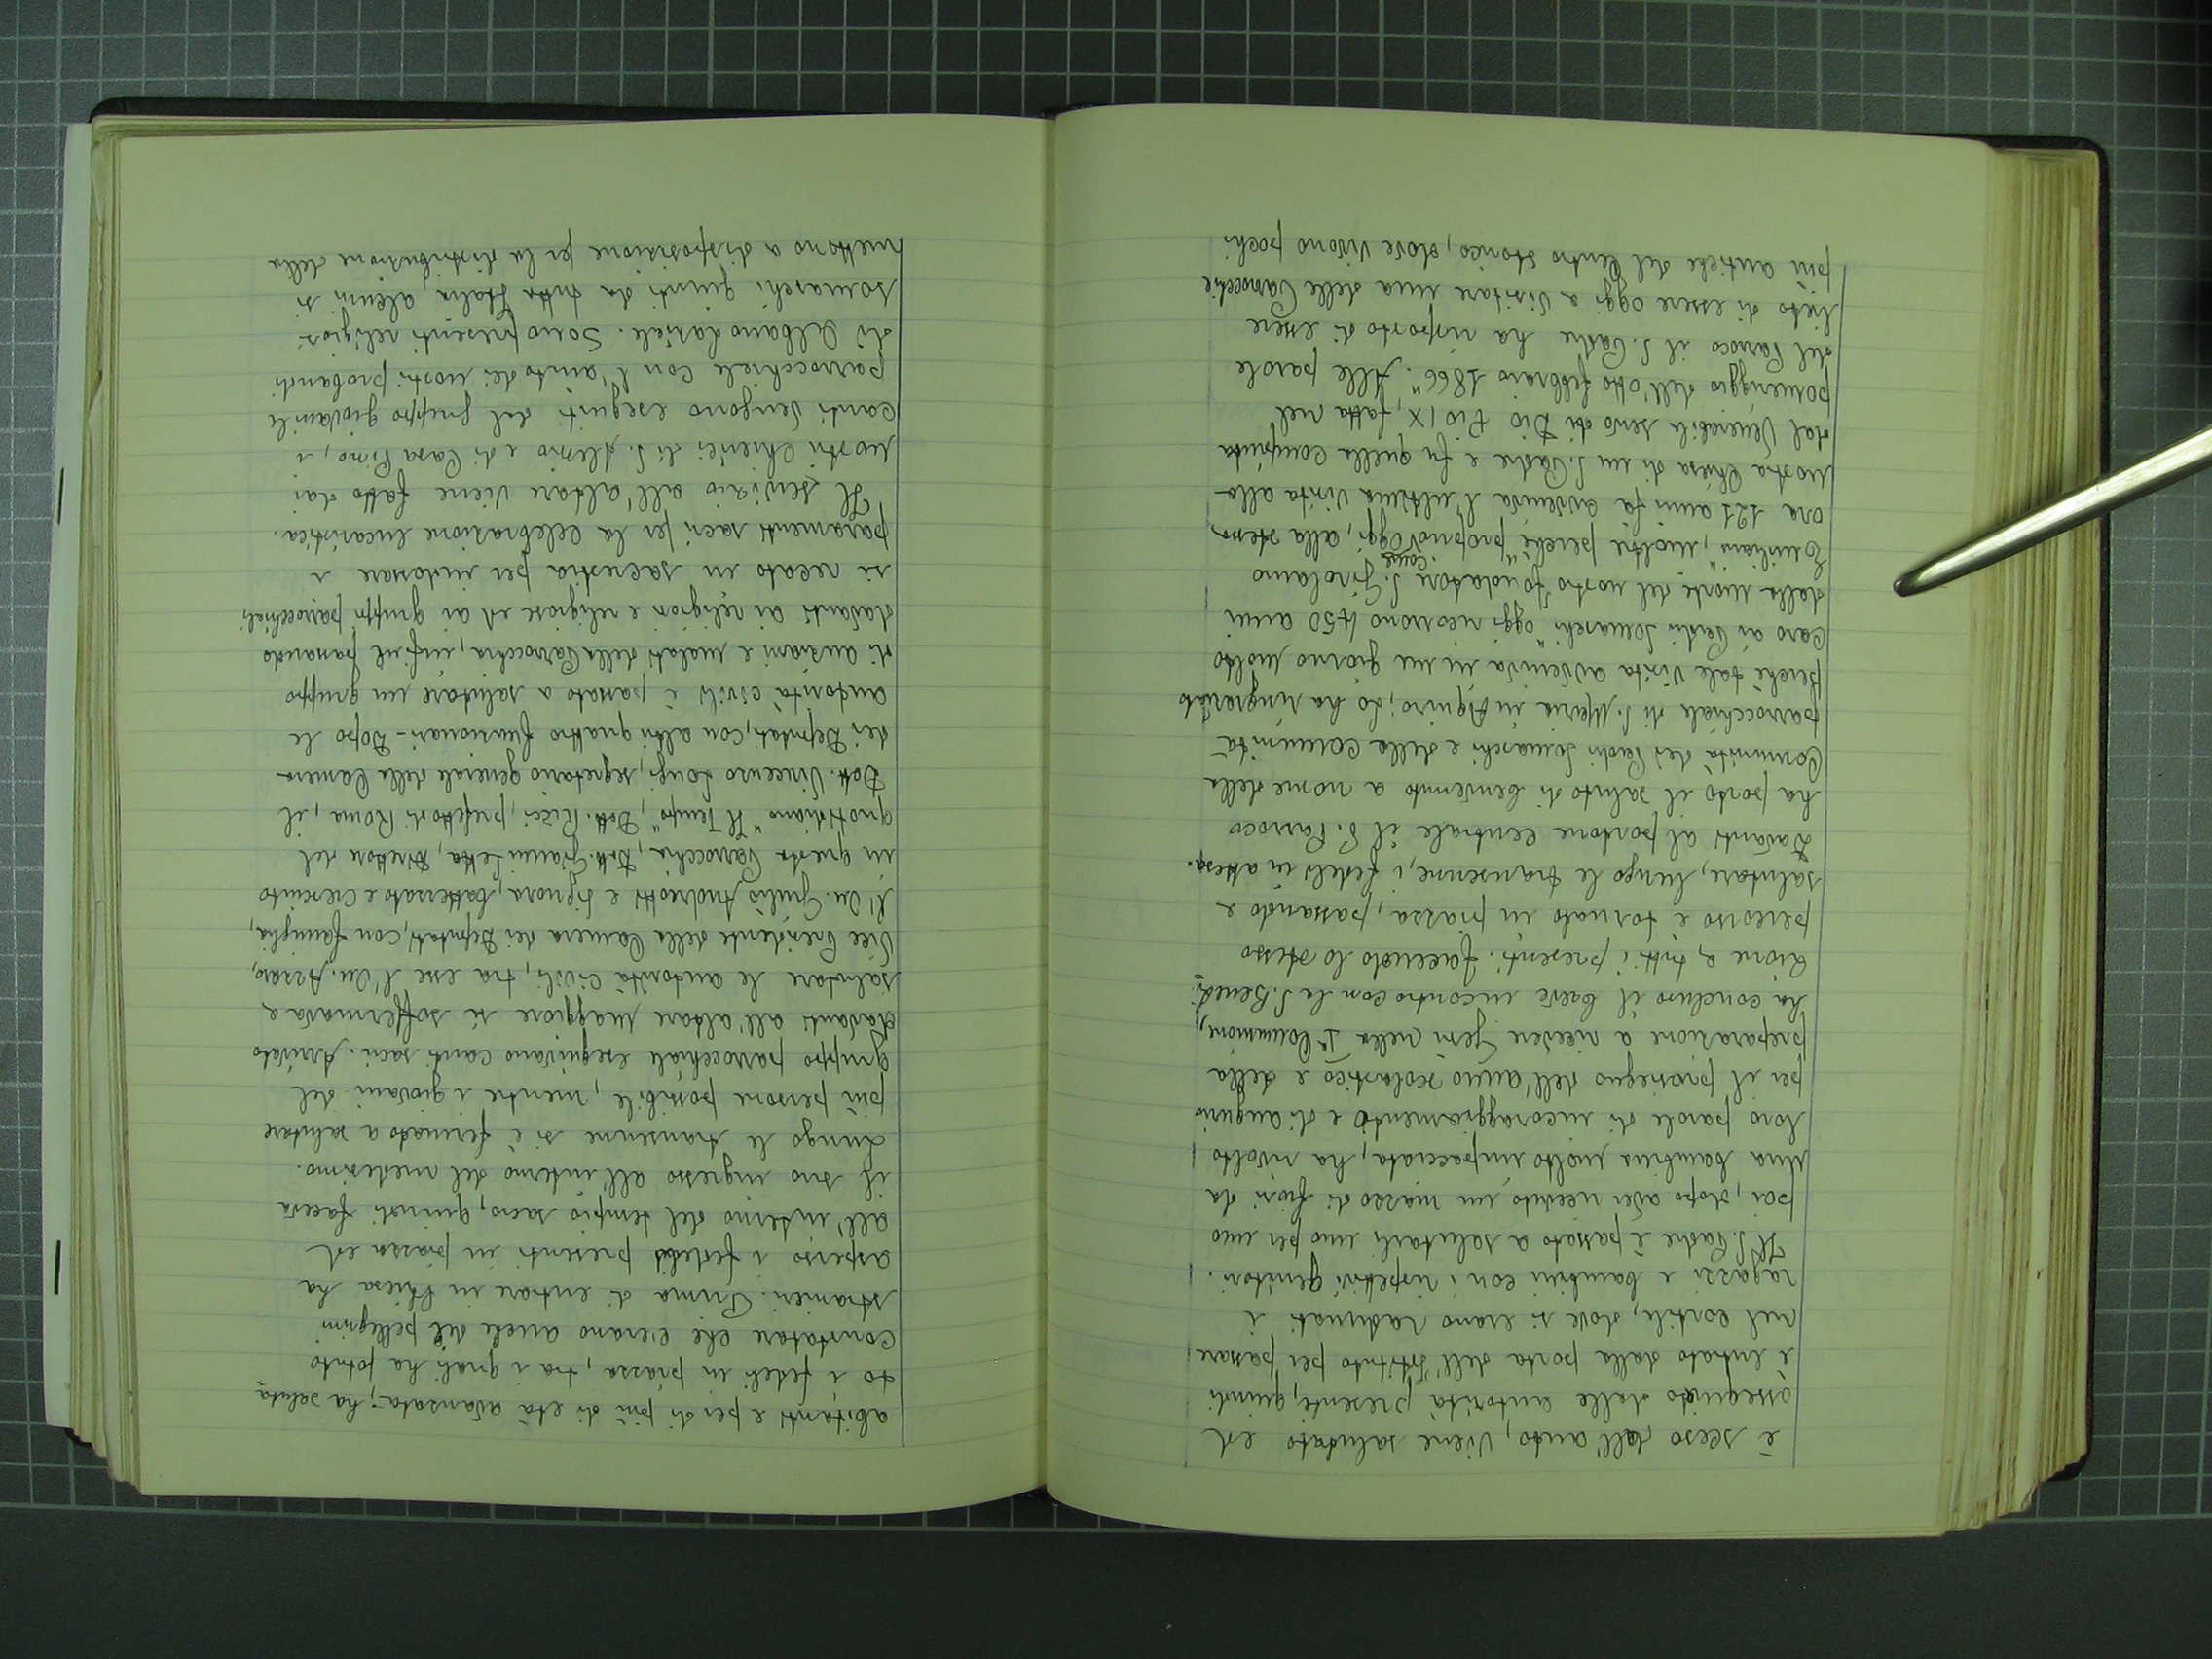 è sceso dall'auto, viene salutato ed
ossequiato dalle autorità presenti, quindi
è entrato dalla porta dell'Istituto per passare
nel cortile, dove si erano radunati i
ragazzi e bambini con i rispettivi genitori.
Il S. Padre è passato a salutarli uno per uno
poi, dopo aver ricevuto un mazzo di fiori da
una bambina molto impacciata, ha rivolto
loro parole di incoraggiamento e di augurio
per il proseguo dell'anno scolastico e della
preparazione a ricevere Gesù nella 1ª Comunione,
ha concluso il breve incontro con la S. Benedi-
zione a tutti i presenti. Facendo lo stesso
percorso è tornato in piazza, passando a
salutare, lungo le transenne, i fedeli in attesa.
Davanti al portone centrale il P. Parroco
ha porto il saluto di benvenuto a nome della
Comunità dei Padri Somaschi e della comunità
parrocchiale di S. Maria in Aquiro; Lo ha ringraziato
perchè tale visita avveniva in un giorno molto
caro ai Padri Somaschi "oggi ricorrono 450 anni
dalla morte del nostro fondatore S. Girolamo
Emiliani", inoltre perchè "proprio come oggi, alla stessa
ora 121 anni fa avveniva l'ultima visita alla
nostra Chiesa di un S. Padre e fu quella compiuta
dal Venerabile servo di Dio Pio IX, fatta nel
pomeriggio dell'otto febbraio 1866". Alle parole
del Parroco il S. Padre ha risposto di essere
lieto di essere oggi a visitare una delle Parrocchie
più antiche del Centro storico, dove vivono pochi
abitanti e per di più di età avanzata; ha saluta
to i fedeli in piazza, tra i quali ha potuto
constatare che v'erano anche dei pellegrini
stranieri. Prima di entrare in Chiesa ha
asperso i fedeli presenti in piazza ed
all'interno del tempio sacro, quindi faceva
il suo ingresso all'interno del medesimo.
Lungo le transenne si è fermato a salutare
più persone possibile, mentre i giovani del
gruppo parrocchiale eseguivano canti sacri. Arrivato
davanti all'altare maggiore si soffermava a
salutare le autorità civili, tra esse l'On. Azzaro,
Vice Presidente della Camera dei Deputati, con famiglia,
l'On. Giulio Andreotti e Signora, battezzato e cresciuto
in questa Parrocchia, Dott. Gianni Letta, Direttore del
quotidiano "Il Tempo", Dott. Ricci, prefetto di Roma, il
Dott. Vincenzo Longi, segretario generale della Camera
dei Deputati, con altri quattro funzionari - Dopo le
autorità civili è passato a salutare un gruppo
di anziani e malati della Parrocchia, infine passando
davanti ai religiosi e religiose ed ai gruppi parrocchiali
si recato in sacrestia per indossare i
paramenti sacri per la celebrazione eucaristica.
Il servizio all'altare viene fatto dai
nostri Chierici di S. Alessio e di Casa Pino, i
canti vengono eseguiti dal gruppo giovanile
parrocchiale con l'aiuto dei nostri probandi
di Albano Laziale. Sono presenti religiosi
somaschi giunti da tutta Italia, alcuni si
mettono a disposizione per la distribuzione della